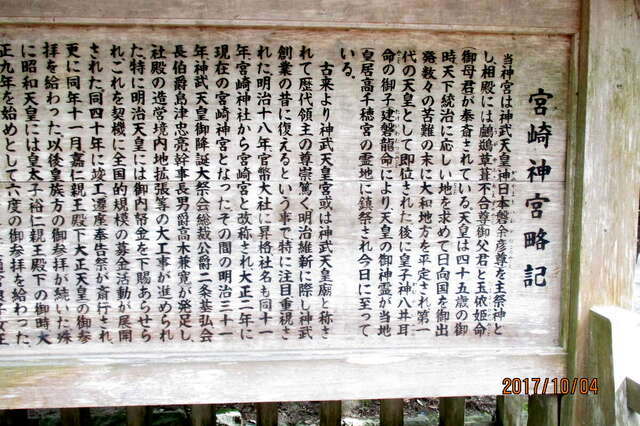 宮崎神宮略記
当神宮は神武天皇神日本磐余彦尊を主祭神と
し相殿には鸕鷀草葺不合尊御父君と玉依姫命
御母君が奉斎されている。天皇は四十五歳の御
時天下統治に応しい地を求めて日向国を御出
発数々の苦難の末に大和地方を平定され第一
代の天皇として即位された後に皇子神八井耳
命の御子建磐龍命により天皇の御神霊が当地
皇居高千穂宮の霊地に鎮祭され今日に至って
いる。
古来より神武天皇宮或は神武天皇廟と称さ
れて歴代領主の尊崇篤く明治維新に際し神武
創業の昔に復えるという事で特に注目重視さ
れた。明治十八年官幣大社に昇格社名も同十一
年宮崎神社から宮崎宮と改称され大正二年に
現在の宮崎神宮となった。その間の明治三十一
年神武天皇御降誕大祭会総裁公爵二条基弘会
長伯爵島津忠亮幹事長男爵高木兼寛が発足し、
社殿の造営境内地拡張等の大工事が進められ
た。特に明治天皇には御内幣金を下賜あらせら
れこれを契機に全国的規模の募金活動が展開
された。同四十年に竣工遷座奉告祭が斎行され、
更に同年十一月嘉仁親王殿下大正天皇の御参
拝を給わった。以後皇族方の御参拝が続いた。殊
に昭和天皇には皇太子裕仁親王殿下の御時大
正九年を始めとして六度の御参拝を給わった。
2017/10/04